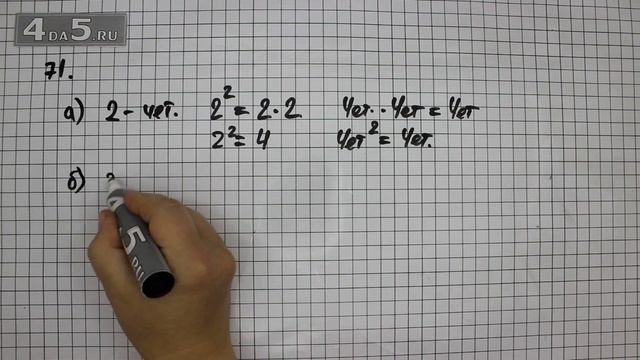 4DA5.RU
71.
а) 2 - чет. 2² = 2 · 2 Чет. · Чет = Чет
2² = 4 Чет² = Чет.
б)